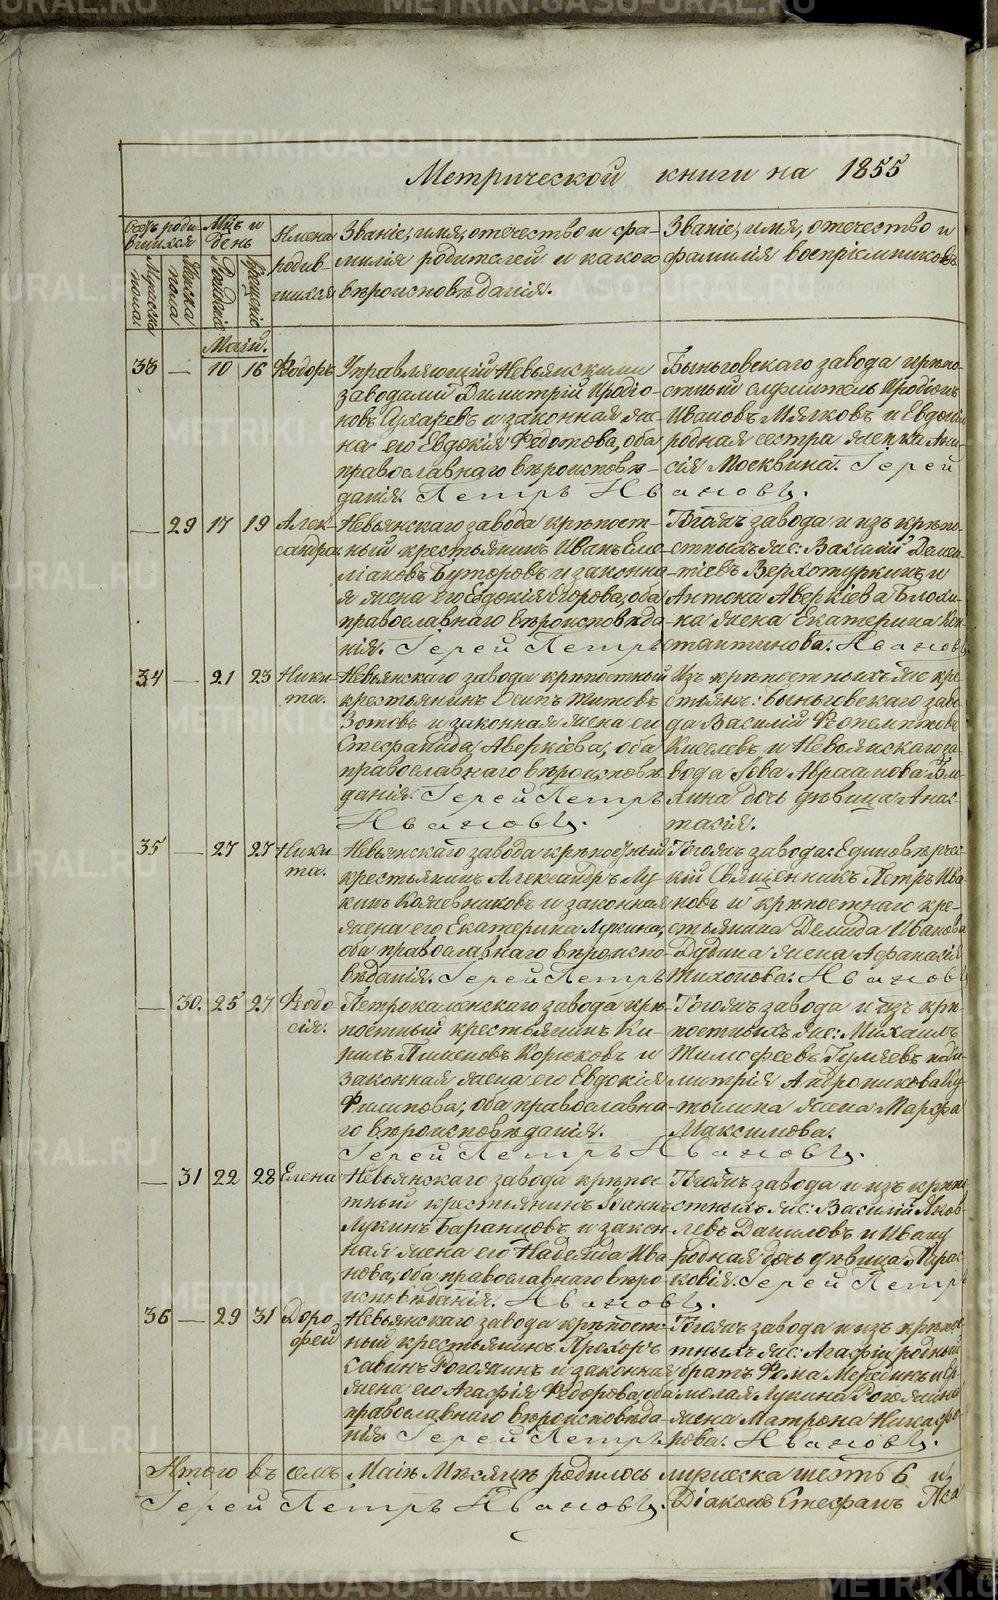 METRIKI.GASO-URAL.RU
Метрической книги на 1855
Счетъ роди-
вшихся
Мужеска
пола.
Женска
пола
Мцъ и
день
Рожденія
Крещенія
Имена
родив-
шихся
Званіе, имя, отечество и фа-
милія родителей и какого
вѣроисповѣданія.
Званіе, имя, отечество и
фамилія воспріемниковъ
Маій.
33 — 10 16 Ѳеодоръ
Управляющій Невьянскими
заводами Димитрій Иродіо-
новъ Сухаревъ и законная же-
на его Евдокія Ѳедотова, оба
православнаго вѣроисповѣ-
данія. Петръ Ивановъ.
Быньговскаго завода крѣпо-
стный служитель Иродіонъ
Ивановъ Мягковъ и Евдокіи
родная сестра женка Ани-
сія Москвина. Іерей
— 29 17 19 Алек-
сандра
Невьянскаго завода крѣпост-
ный крестьянинъ Иванъ Еме-
ліановъ Буторовъ и законна-
я жена его Евдокія Егорова, оба
православнаго вѣроисповѣда-
нія. Іерей Петръ
Тогожъ завода и изъ крѣпо-
стныхъ же: Василій Демен-
тіевъ Верхотуркинъ и
Антона Аверкіева Блохи-
на жена Екатерина Кон-
стантинова. Ивановъ
34 — 21 23 Ники-
та.
Невьянскаго завода крѣпостный
крестьянинъ Осипъ Титовъ
Зотовъ и законная жена его
Стефанида Аверкіева, оба
православнаго вѣроисповѣ-
данія. Іерей Петръ
Ивановъ.
Изъ крѣпостныхъ же кре-
стьянъ: Быньговскаго заво-
да Василій Ѳеопемптовъ
Киселевъ и Невьянскаго за-
вода Іова Абраамова
дочь дѣвица Анас-
тасія.
35 — 27 27 Ники-
та.
Невьянскаго завода крѣпостный
крестьянинъ Александръ Лу-
кинъ Кожевниковъ и законная
жена его Екатерина Лукина,
оба православнаго вѣроиспо-
вѣданія. Іерей Петръ
Тогожъ завода: Единовѣрчес-
кій Священникъ Петръ Ива-
новъ и крѣпостнаго кре-
стьянина Демида Иванова
Дудина жена Афанасія
Тихонова. Ивановъ
— 30. 25 27 Ѳеодо-
сія.
Петрокаменскаго завода крѣ-
постный крестьянинъ Ки-
рилъ Пименовъ Корюковъ и
законная жена его Евдокія
Филипова; оба православна-
го вѣроисповѣданія.
Іерей Петръ Ивановъ.
Тогожъ завода и изъ крѣ-
постныхъ же: Михаилъ
Тимофеевъ Гуляевъ и Ди-
митрія Андроникова
жена Марфа
Максимова.
— 31 22 28 Елена
Невьянскаго завода крѣпос-
тный крестьянинъ Іванъ
Лукинъ Баранцовъ и закон-
ная жена его Надежда Ива-
нова, оба православнаго вѣро-
исповѣданія. Ивановъ.
Тогожъ завода и изъ крѣпо-
стныхъ же: Василій Яков-
левъ Даниловъ и Ивану
родная дочь дѣвица Парас-
ковія. Іерей Петръ
36 — 29 31 Доро-
фей
Невьянскаго завода крѣпост-
ный крестьянинъ Прохоръ
Савинъ Рогожинъ и законная
жена его Агафія Ѳедорова, оба
православнаго вѣроисповѣда-
нія. Іерей Петръ
Тогожъ завода и изъ крѣпос-
тныхъ же: Агафіи родный
братъ Ѳома Мередимъ и Ер-
молая Лукина Рогожина
жена Матрона Никифо-
рова. Ивановъ.
Итого въ семъ Маіѣ Мѣсяцѣ родилось мужеска шесть 6 и
Іерей Петръ Ивановъ. Діаконъ Стефанъ